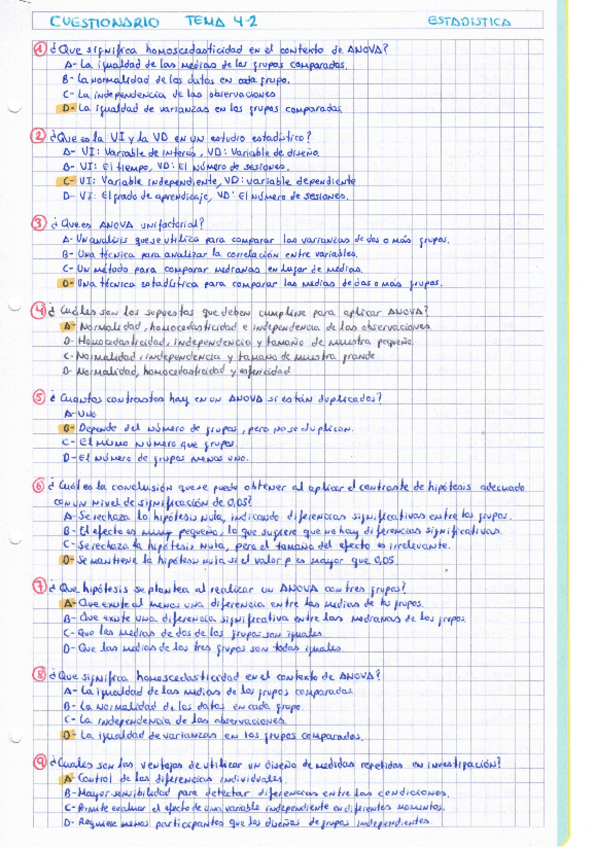 CUESTIONARIO TEMA 4-2 ESTADISTICA
1 ¿Que significa homoscedasticidad en el contexto de ANOVA?
A- La igualdad de las medias de los grupos comparados.
B- La normalidad de los datos en cada grupo.
C- La independencia de las observaciones
D- La igualdad de varianzas en los grupos comparados.
2 ¿Que es la VI y la VD en un estudio estadístico?
A- VI: Variable de interés, VD: Variable de diseño.
B- VI: El tiempo, VD: El número de sesiones.
C- VI: Variable independiente, VD: variable dependiente
D- VI: El grado de aprendizaje, VD: El número de sesiones.
3 ¿Que es ANOVA unifactorial?
A- Un analisis que se utiliza para comparar las varianzas de dos o más grupos.
B- Una técnica para analizar la correlación entre variables.
C- Un método para comparar medianas en lugar de medias.
D- Una técnica estadística para comparar las medias de dos o más grupos.
4 ¿Cuáles son los supuestos que deben cumplirse para aplicar ANOVA?
A- Normalidad, homocedasticidad e independencia de las observaciones
B- Homocedasticidad, independencia y tamaño de muestra pequeño.
C- Normalidad, independencia y tamaño de muestra grande
D- Normalidad, homocedasticidad y esfericidad
5 ¿Cuantos contrastes hay en un ANOVA si están duplicados?
A- Uno
B- Depende del número de grupos, pero no se duplican.
C- El mismo número que grupos.
D- El número de grupos menos uno.
6 ¿Cuál es la conclusión que se puede obtener al aplicar el contraste de hipótesis adecuado
con un nivel de significación de 0,05?
A- Se rechaza la hipótesis nula, indicando diferencias significativas entre los grupos.
B- El efecto es muy pequeño, lo que sugiere que no hay diferencias significativas.
C- Se rechaza la hipótesis nula, pero el tamaño del efecto es irrelevante.
D- Se mantiene la hipótesis nula si el valor p es mayor que 0,05
7 ¿Que hipótesis se plantea al realizar un ANOVA con tres grupos?
A- Que existe al menos una diferencia entre las medias de los grupos.
B- Que existe una diferencia significativa entre las medianas de los grupos
C- Que las medias de dos de los grupos son iguales.
D- Que las medias de los tres grupos son todas iguales.
8 ¿Que significa homoscedasticidad en el contexto de ANOVA?
A- La igualdad de las medias de los grupos comparados
B- La normalidad de los datos en cada grupo.
C- La independencia de las observaciones
D- La igualdad de varianzas en los grupos comparados.
9 ¿Cuales son las ventajas de utilizar un diseño de medidas repetidas en investigación?
A- Control de las diferencias individuales.
B- Mayor sensibilidad para detectar diferencias entre las condiciones.
C- Permite evaluar el efecto de una variable independiente en diferentes momentos.
D- Requiere menos participantes que los diseños de grupos independientes.